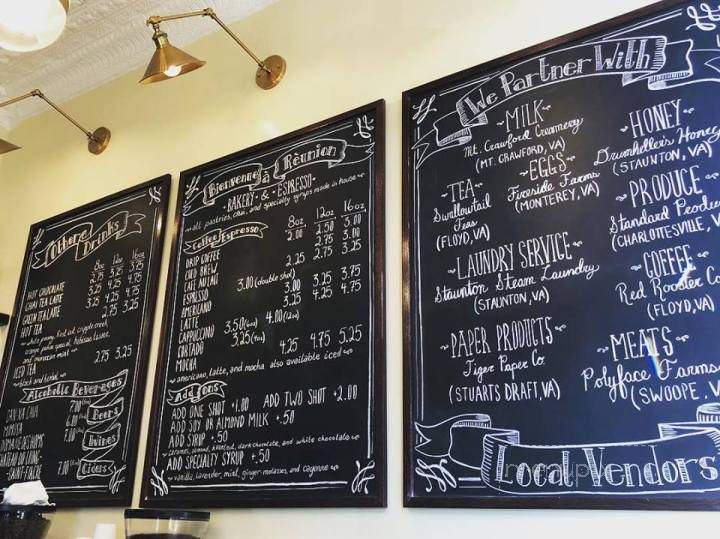 Othere Drinks
8oz 12oz 16oz
HOT CHOCOLATE 2.75 3.25 3.75
CHAI TEA LATTE 3.25 4.25 4.75
GREEN TEA LATTE 3.25 4.25 4.75
HOT TEA 2.25 2.75
and moroccan mint
2.75 3.25
ICED TEA
black and herbal
Alcoholic Beverages
7.00
6.00
7.00
Beers
Wines
Ciders
SAINT-FOLCHE
Bienvenue à Rèunion
BAKERY & ESPRESSO
all pastries, chai, and specialty syrups made in house
Coffee/Espresso
8oz. 12oz 16oz.
DRIP COFFEE 2.00 2.50 3.00
COLD BREW 2.75 3.00
CAFE AU LAIT 2.25 2.75 3.25
ESPRESSO 3.00 (double shot)
AMERICANO 3.00 3.25 3.75
LATTE 3.25 4.25 4.75
CAPPUCCINO 3.50 (6oz) 4.00 (12oz)
CORTADO 3.25 (4oz)
MOCHA 4.25 4.75 5.25
americano, latte, and mocha also available iced
Add ons
ADD ONE SHOT +1.00 ADD TWO SHOT +2.00
ADD SOY OR ALMOND MILK +.50
ADD SYRUP +.50
caramel, almond, hazelnut, dark chocolate, and white chocolate
ADD SPECIALTY SYRUP +.50
vanilla, lavender, mint, ginger-molasses, and cayenne
We Partner With
MILK
Mt. Crawford Creamery
(MT. CRAWFORD, VA)
EGGS
Fireside Farms
(MONTEREY, VA)
TEA
Swallowtail
Teas
(FLOYD, VA)
LAUNDRY SERVICE
Staunton Steam Laundry
(STAUNTON, VA)
PAPER PRODUCTS
Tiger Paper Co.
(STUARTS DRAFT, VA)
HONEY
Drumhellers Honey
(STAUNTON, VA)
PRODUCE
Standard Produce
(CHARLOTTESVILLE, VA
COFFEE
Red Rooster Co
(FLOYD, VA)
MEATS
Polyface Farms
(SWOOPE, V
Local Vendors